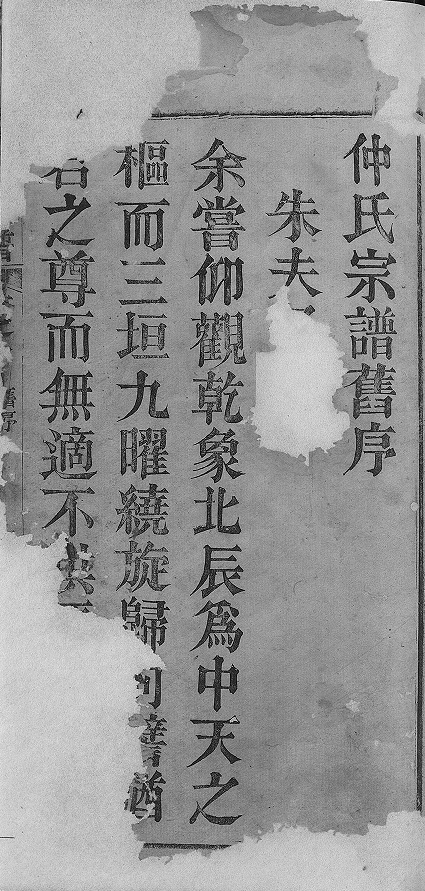 仲氏宗譜舊序
朱夫
余嘗仰觀乾象北辰爲中天之
樞而三垣九曜繞旋歸向譬猶
君之尊而無適不
舊序